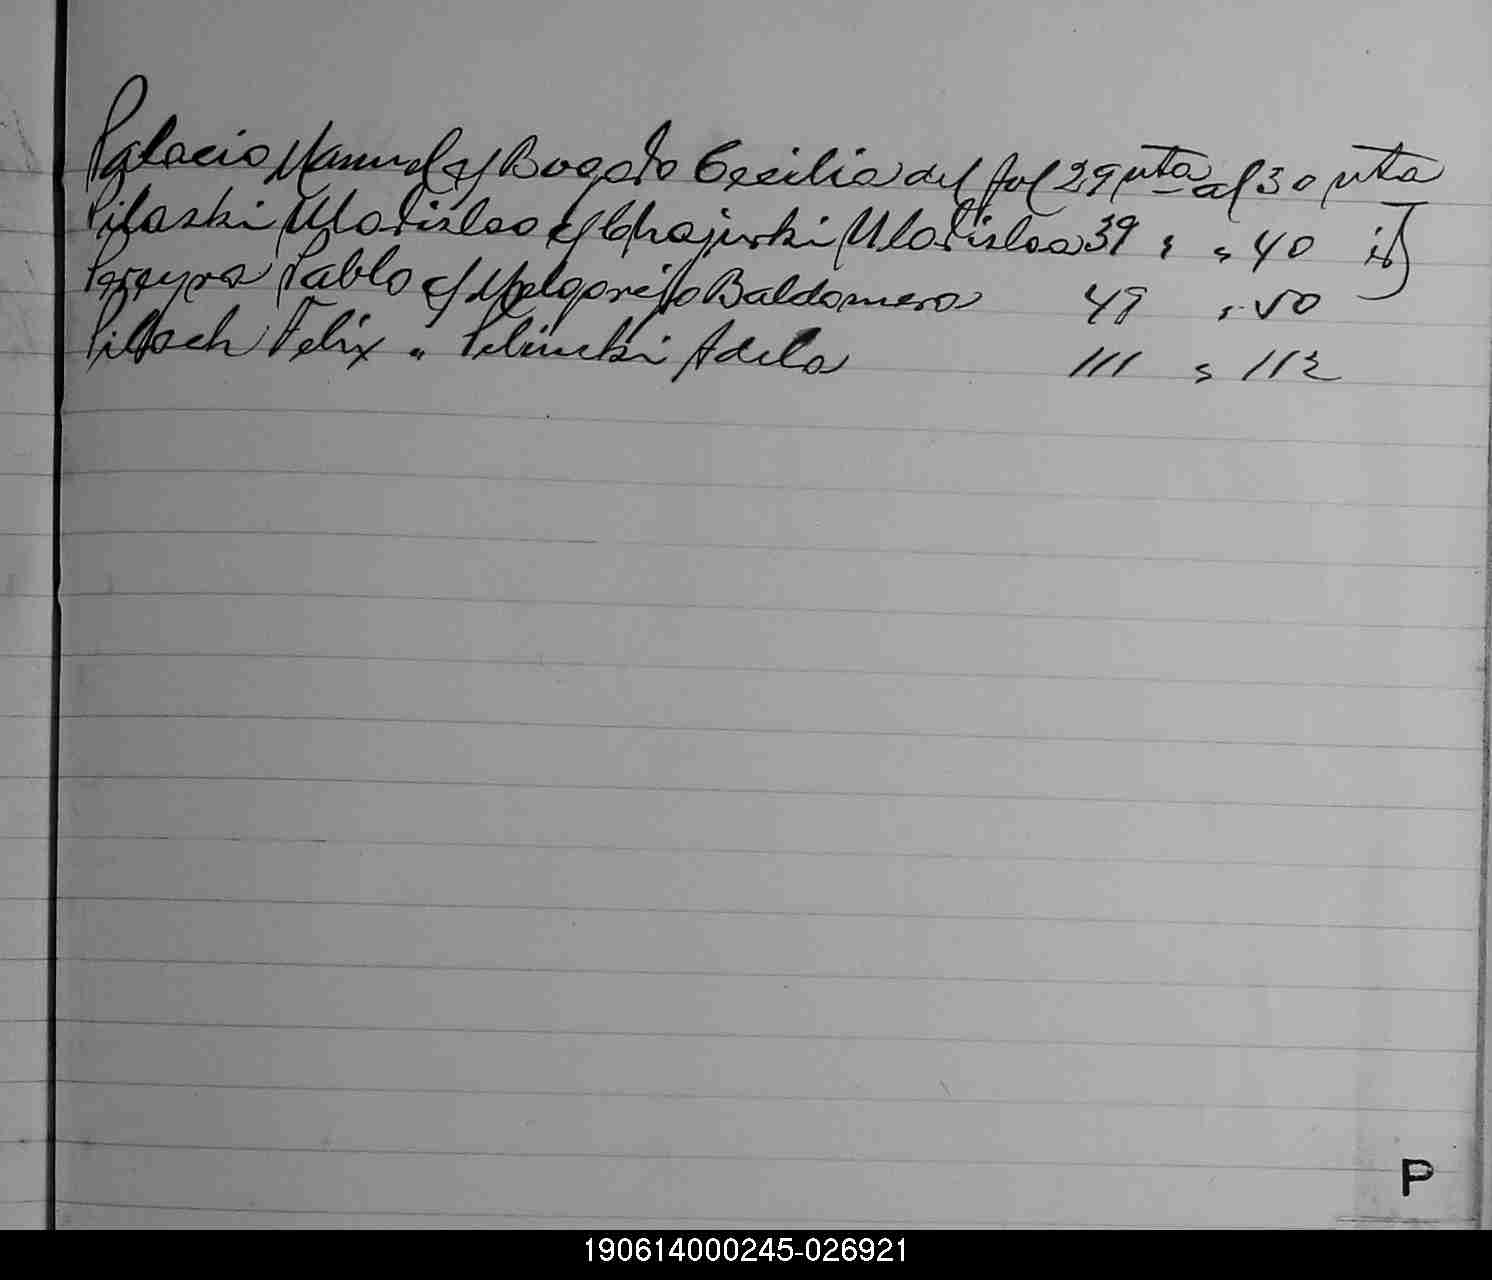 Palacio Manuel c/ Bogado Cecilia del fol 29 vta al 30 vta
Pilaski Uladislao c/ Chajurki Uladislaa 39 " " 40 id
Pereyra Pablo c/ Melgarejo Baldomero 49 " 50
Pilach Felix " Adela 111 " 112
P
190614000245-026921